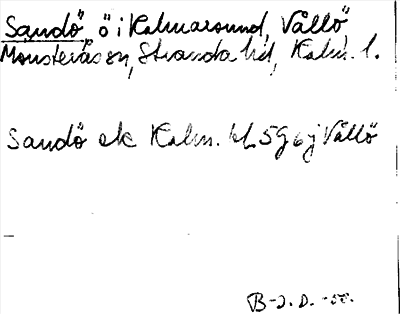 Sandö, ö i Kalmarsund, Vållö
Mönsterås sn, Stranda hd, Kalm. l.
Sandö ek Kalm. bl 5g6j Vållö
B-J. D. -58.